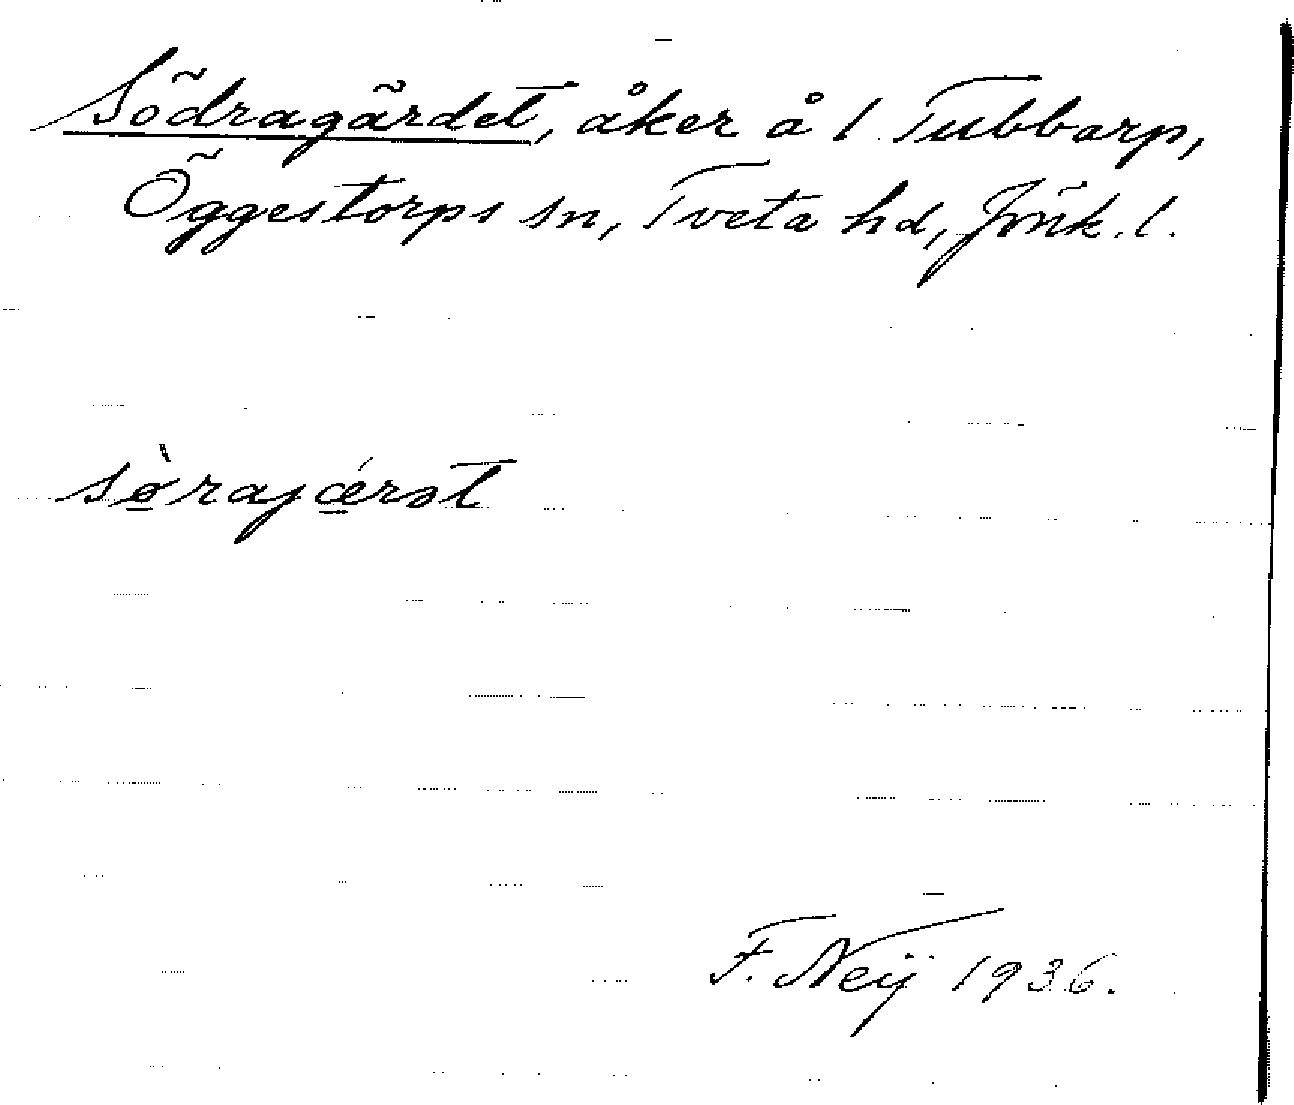 Södragärdet, åker å 1 Tubbarp,
Öggestorps sn, Tveta hd, Jönk. l.
sø̱̀rajǽ̱rət
F. Neij 1936.